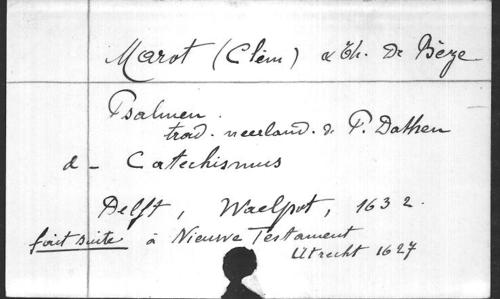 Marot (Clém) & Th. de Bèze
Psalmen.
trad. neerland. de P. Dathen
d - Catechismus
Delft, Waelpot, 1632.
fait suite à Nieuwe Testament
Utrecht 1627